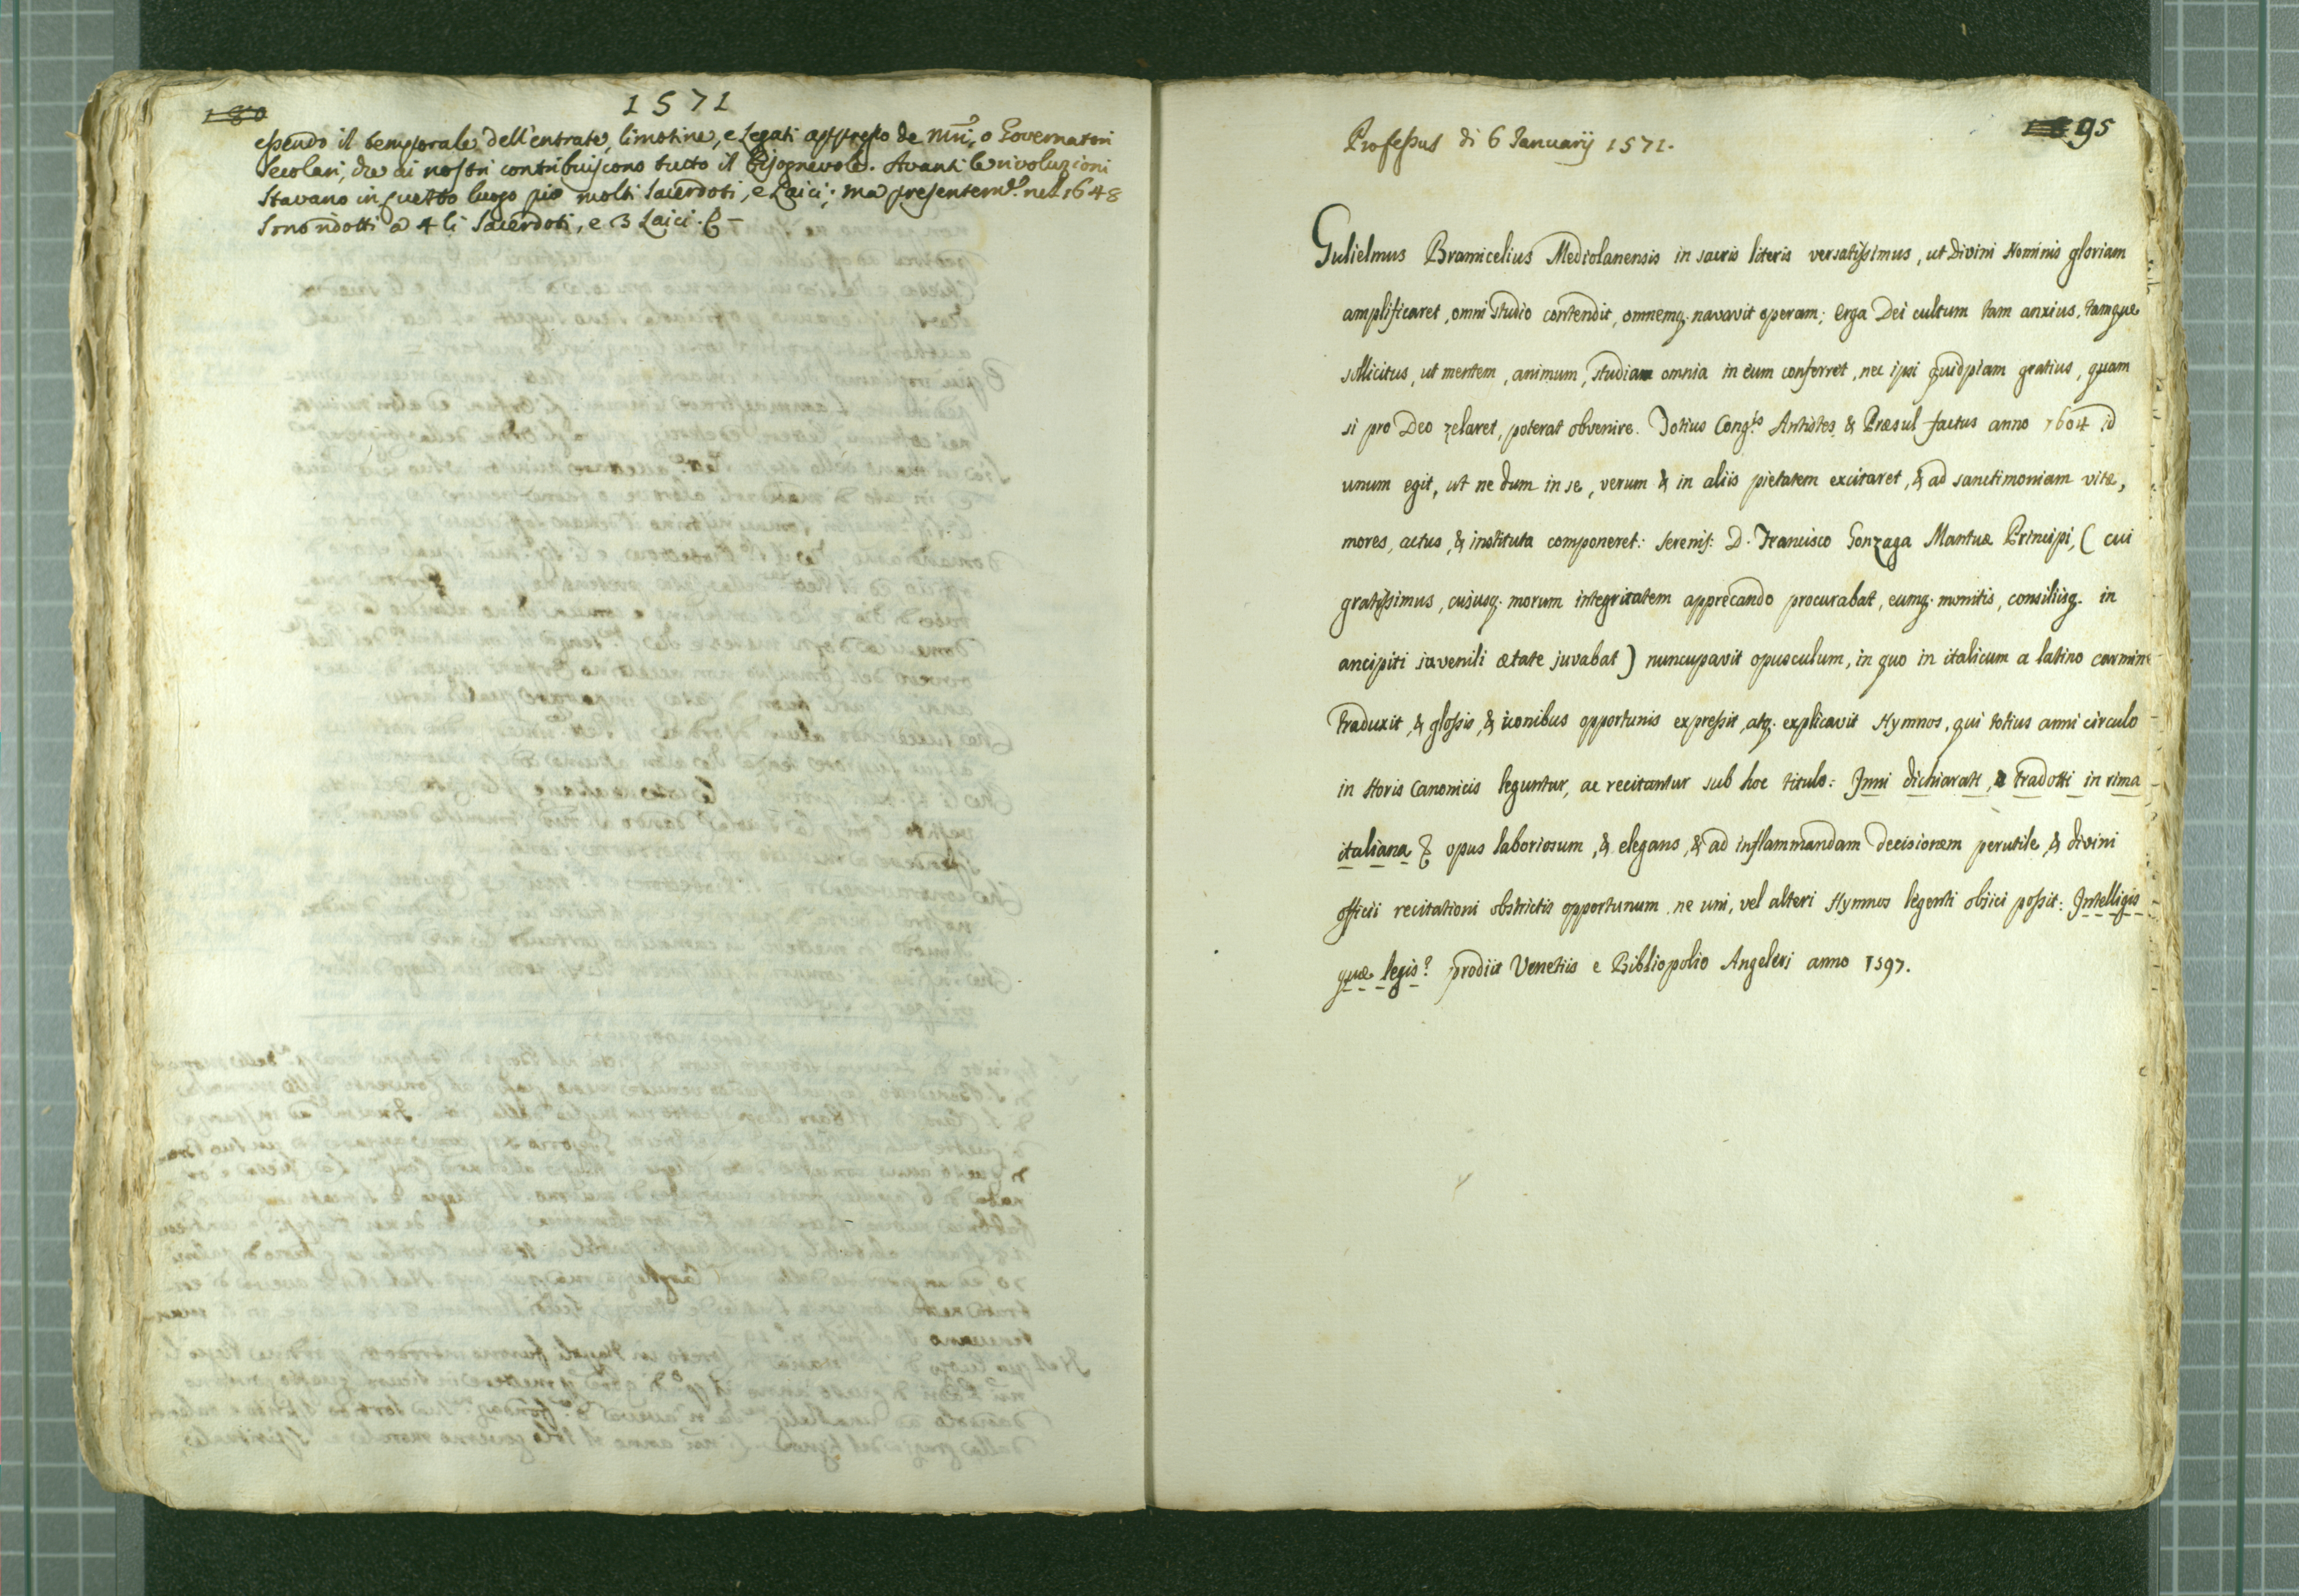 180
1571
essendo il temporale dell'entrate, limosine, e legati appresso de Mri, o Governatori
secolari, che ai nostri contribuiscono tutto il bisognevole. Avanti le rivoluzioni
stavano in questo luogo pio molti Sacerdoti, e Laici; ma presentemte. nel 1648
sono ridotti a 4 li Sacerdoti, e 3 Laici.
95
Professus di 6 Januarij 1571.
Gulielmus Bramicelius Mediolanensis in sacris literis versatissimus, ut divini Nominis gloriam
amplificaret, omni studio contendit, omnemq. navavit operam; erga Dei cultum tam anxius, tamque
sollicitus, ut mentem, animum, studia omnia in eum conferret, nec ipsi quidpiam gratius, quam
si pro Deo zelaret, poterat obvenire. Totius Congis Antistes & Præsul factus anno 1604 id
unum egit, ut ne dum in se, verum & in aliis pietatem excitaret, & ad sanctimoniam vitæ,
mores, actus, & instituta componeret: Serenis: D. Francisco Gonzaga Mantuæ Principi, ( cui
gratissimus, cujusq. morum integritatem apprecando procurabat, eumq. monitis, consiliisq. in
ancipiti juvenili ætate juvabat ) nuncupavit opusculum, in quo in italicum a latino carmine
traduxit, & glossis, & iconibus opportunis expressit, atq. explicavit Hymnos, qui totius anni circulo
in Horis Canonicis leguntur, ac recitantur sub hoc titulo: Inni dichiarati, e tradotti in rima
italiana & opus laboriosum, & elegans, & ad inflammandam decisionem perutile, & divini
officii recitationi obstrictis opportunum, ne uni, vel alteri Hymnos legenti objici possit: Intelligis
quæ legis? prodiit Venetiis e Bibliopolio Angeleri anno 1597.